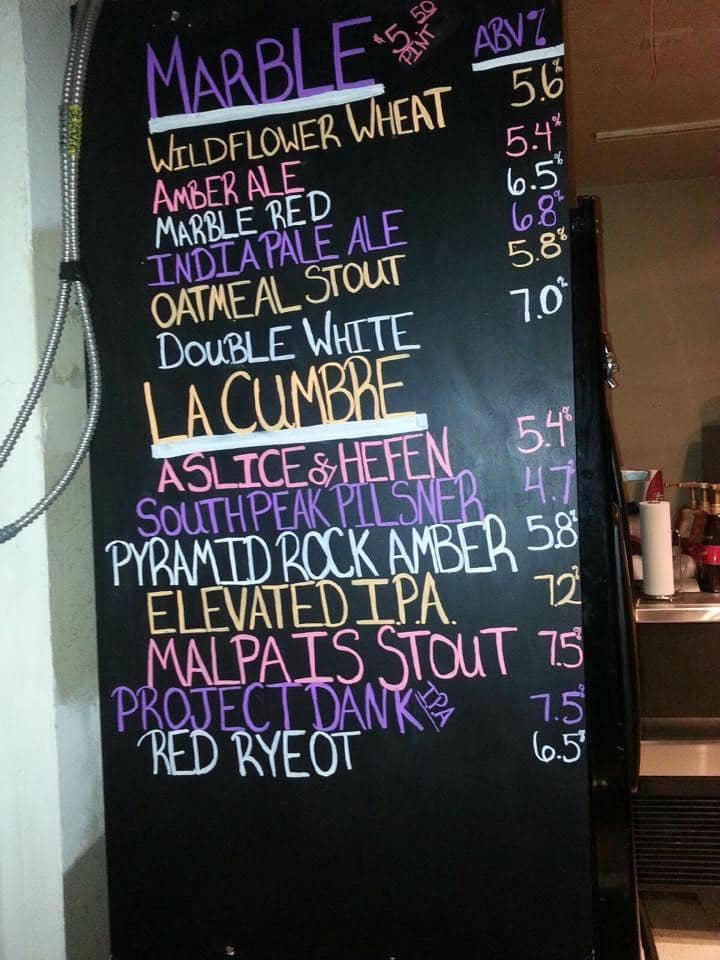 MARBLE $5.50 PINT ABV%
WILDFLOWER WHEAT 5.6
AMBER ALE 5.4%
MARBLE RED 6.5%
INDIA PALE ALE 6.8%
OATMEAL STOUT 5.8%
DOUBLE WHITE 7.0%
LA CUMBRE
A SLICE of HEFEN 5.4%
SOUTH PEAK PILSNER 4.7
PYRAMID ROCK AMBER 5.8%
ELEVATED I.P.A. 7.2%
MALPAIS STOUT 7.5%
PROJECT DANK IPA 7.5%
RED RYEOT 6.5%